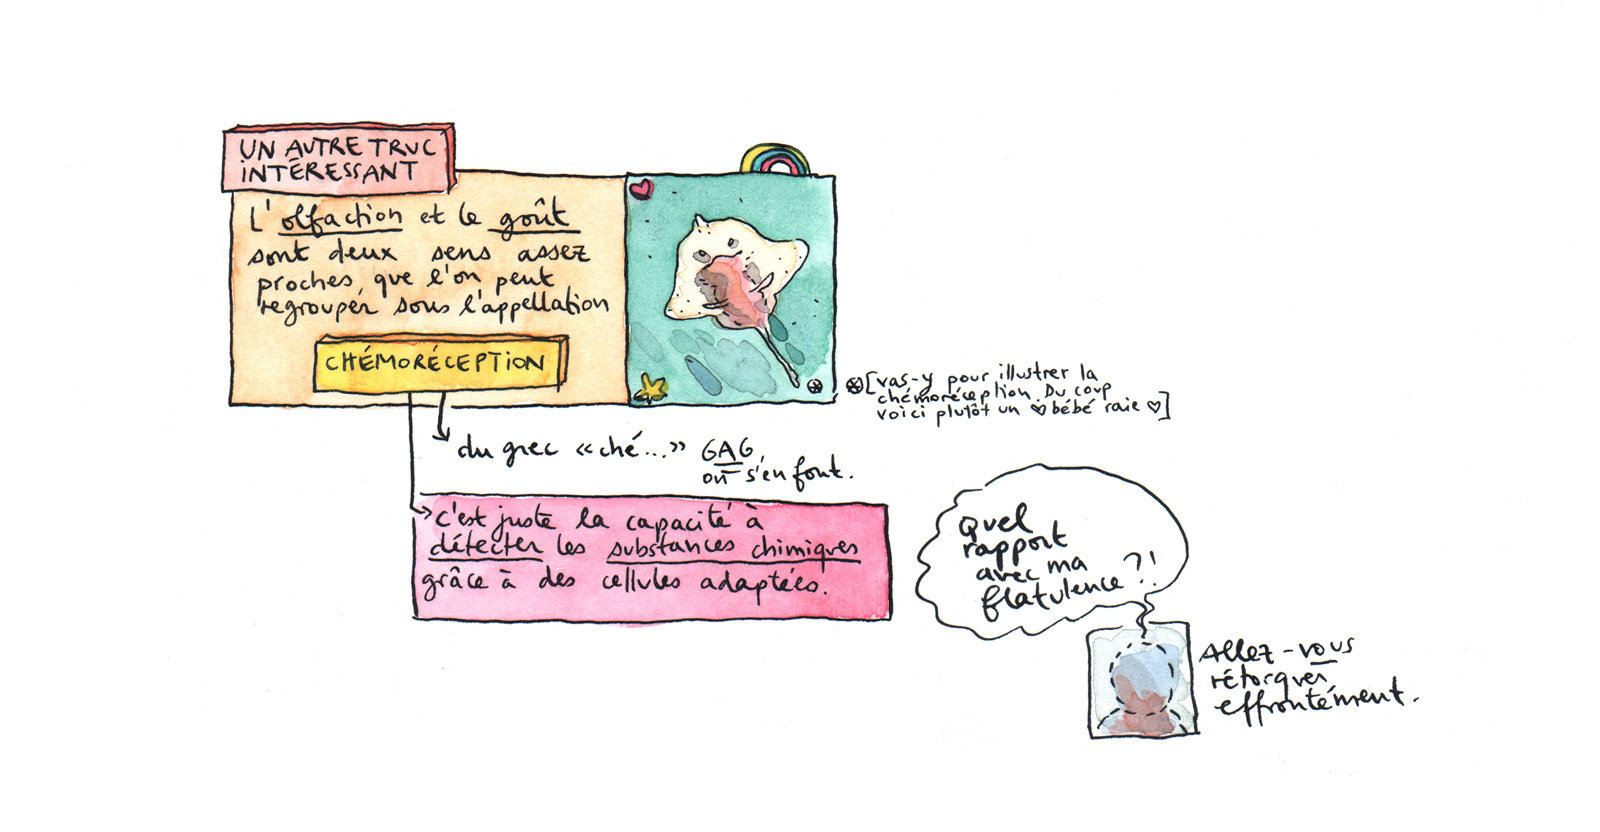 UN AUTRE TRUC
INTÉRESSANT
L'olfaction et le goût
sont deux sens assez
proches, que l'on peut
regrouper sous l'appellation
CHÉMORÉCEPTION
[vas-y pour illustrer la
chémoréception. Du coup
voici plutôt un ♡ bébé raie ♡]
du grec «ché...» GAG,
on s'en fout.
c'est juste la capacité à
détecter les substances chimiques
grâce à des cellules adaptées.
Quel
rapport
avec ma
flatulence ?!
Allez-vous
rétorquer
effrontément.